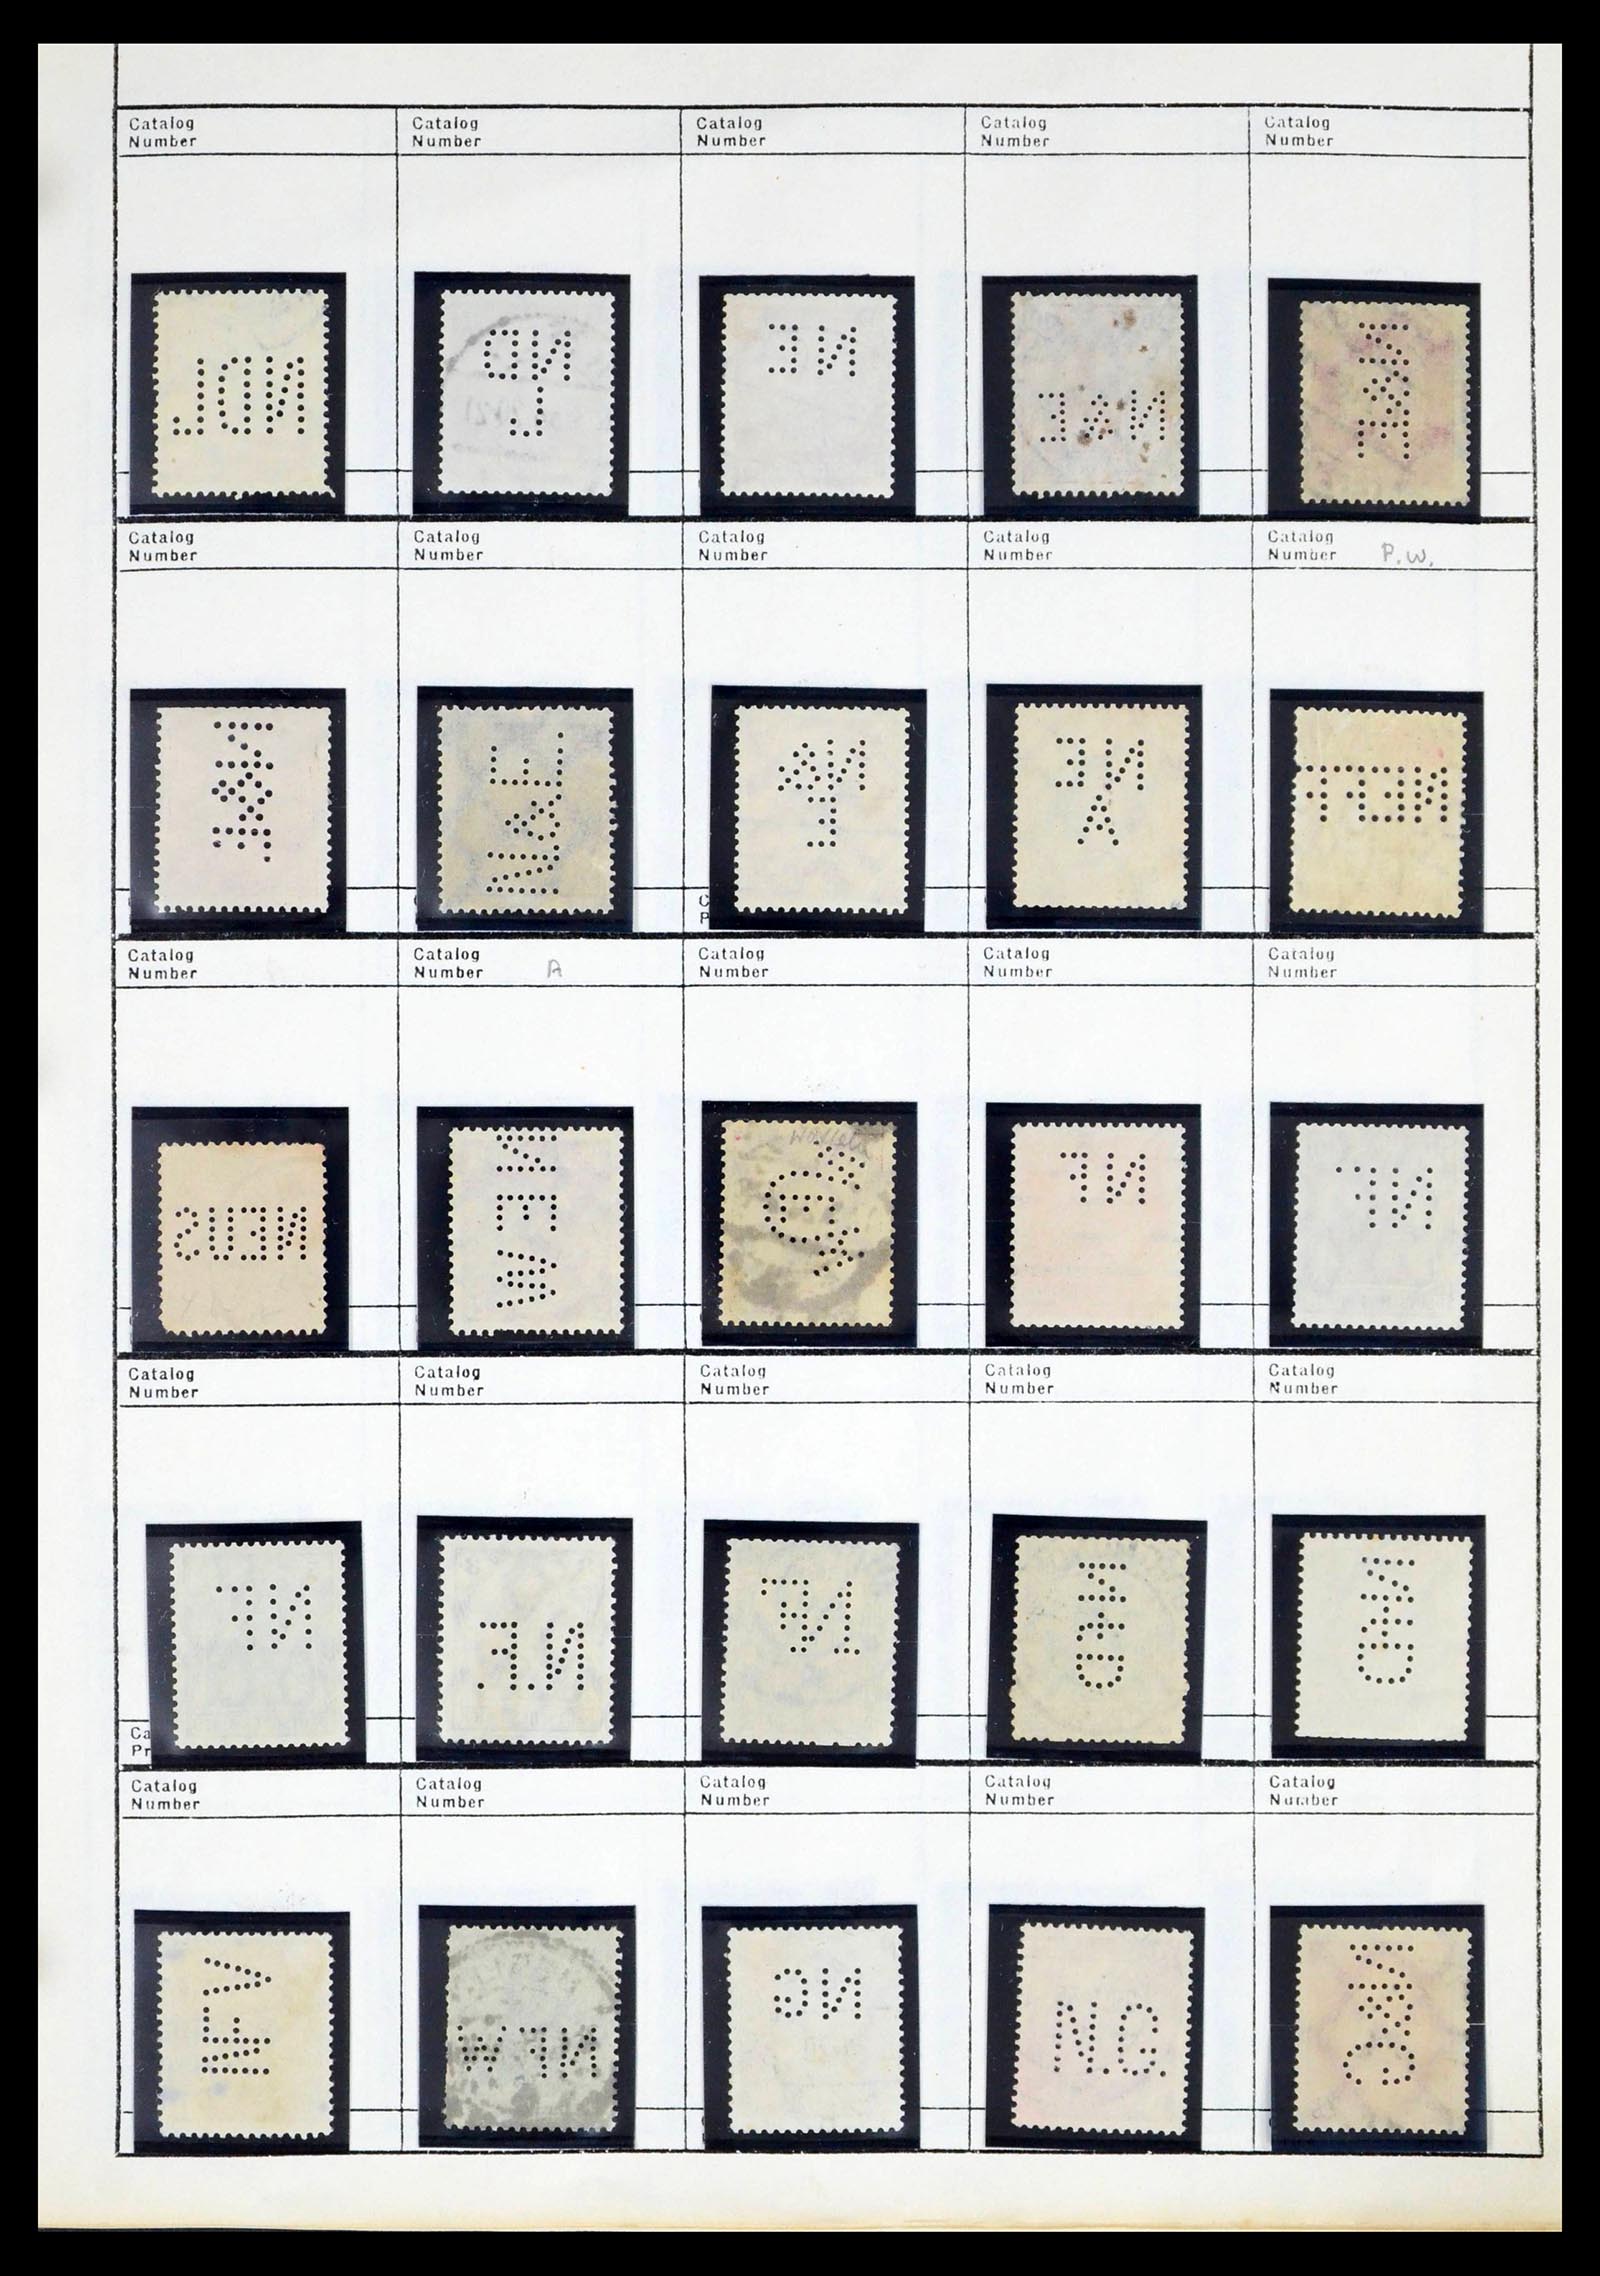 Catalog Number
Catalog Number
Catalog Number
Catalog Number
Catalog Number
NDL
ND
L
NE
N&E
N&E
Catalog Number
Catalog Number
Catalog Number
Catalog Number
Catalog Number P.W.
N&E
N&E
N&
E
NE
A
NEFF
C
P
Catalog Number
Catalog Number A
Catalog Number
Catalog Number
Catalog Number
NEUS
NEW
NF
NF
Catalog Number
Catalog Number
Catalog Number
Catalog Number
Catalog Number
NF
N.F.
NF
Ca
Pr
Catalog Number
Catalog Number
Catalog Number
Catalog Number
Catalog Number
NFV
NFW
NG
N.G.
N&G